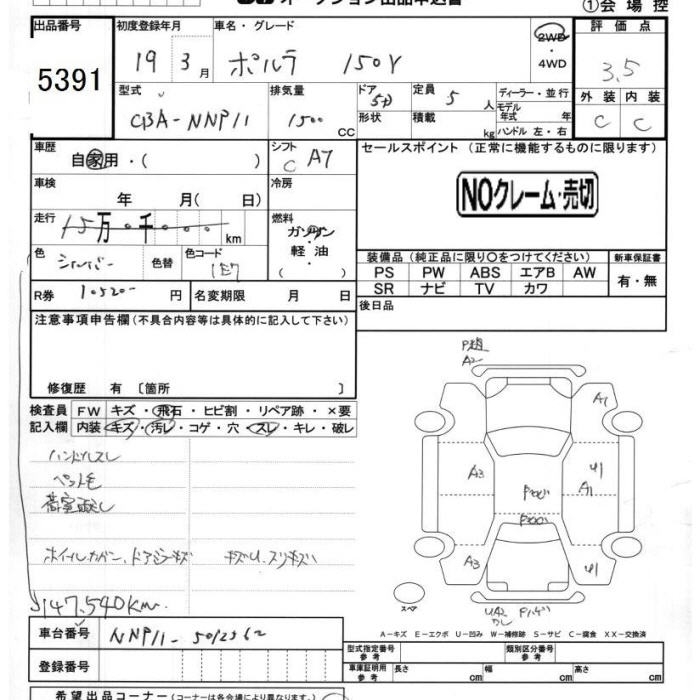 ①会場控
出品番号
5391
初度登録年月
19 3月
車名・グレード
ポルテ 150Y
2WD
・
4WD
評価点
3.5
型式
CBA-NNP11
排気量
1500 CC
ドア
5D
形状
定員
5 人
積載
kg
ディーラー・並行
モデル年式 年
ハンドル 左・右
外装 内装
C C
車歴
自家用・( )
シフト
C A7
セールスポイント (正常に機能するものに限ります)
NOクレーム・売切
車検
年 月( 日)
冷房
走行
15万0千000 km
燃料
ガソリン
・
軽油
( )
色
シルバー
色替
色コード
1E7
装備品 (純正品に限り○をつけてください)
PS PW ABS エアB AW
SR ナビ TV カワ
新車保証書
有・無
R券 10520- 円
名変期限 月 日
後日品
注意事項申告欄 (不具合内容等は具体的に記入して下さい)
修復歴 有 〔箇所 〕
検査員記入欄
FW キズ・飛石・ヒビ割・リペア跡・×要
内装 キズ・汚レ・コゲ・穴・スレ・キレ・破レ
ハンドルスレ
ペット毛
荷室汚し
ホイルカバー、ドアミラーキズ
キズU、スリキズ
147,540km
A2
A1
A3
U1
A1
A3
U1
スペア
A-キズ E-エクボ U-凹み W-補修跡 S-サビ C-腐食 XX-交換済
車台番号 NNP11-5012362
登録番号
型式指定番号
参考
類別区分番号
参考
車庫証明用
参考
長さ cm 幅 cm 高さ cm
希望出品コーナー (コーナーは各会場により異なります。)